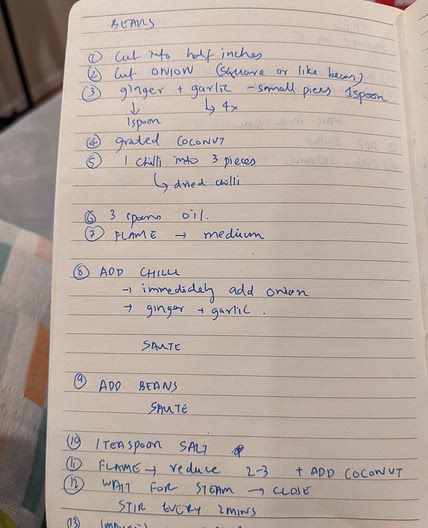 BEANS
① Cut into half inches
② Cut ONION (square or like beans)
③ ginger + garlic - small pieces 1spoon
↓ ↳ 4x
1spoon
④ grated COCONUT
⑤ 1 chilli into 3 pieces
↳ dried chilli
⑥ 3 spoons oil.
⑦ FLAME → medium
⑧ ADD CHILLI
→ immedidely add onion
→ ginger + garlic.
SAUTE
⑨ ADD BEANS
SAUTE
⑩ 1TEASPOON SALT
⑪ FLAME → reduce 2-3 + ADD COCONUT
⑫ WAIT FOR STEAM → CLOSE
STIR EVERY 2MINS
⑬